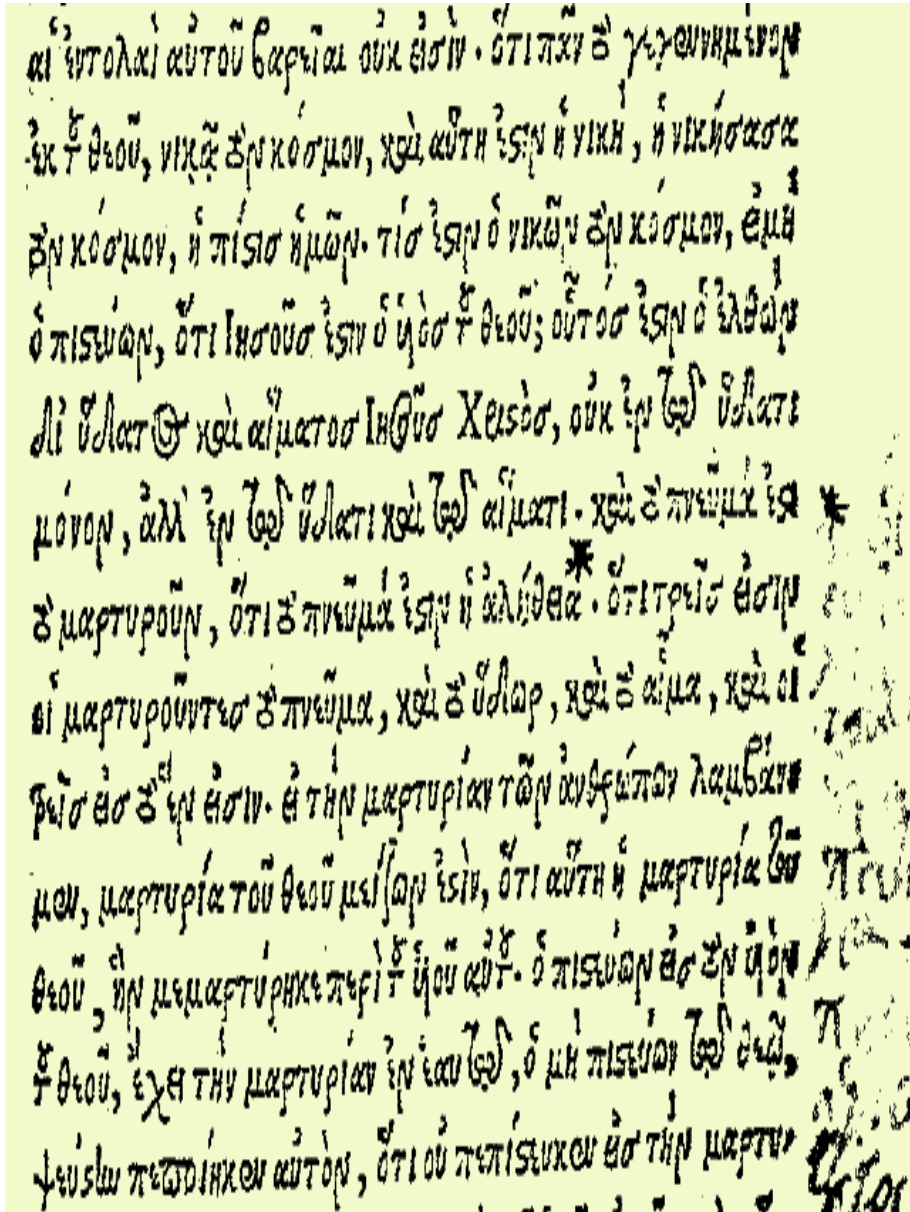 αἱ ἐντολαὶ αὐτοῦ βαρεῖαι οὐκ εἰσίν. ὅτι πᾶν τὸ γεγεννημένον
ἐκ τοῦ θεοῦ, νικᾷ τὸν κόσμον, καὶ αὕτη ἐστὶν ἡ νίκη, ἡ νικήσασα
τὸν κόσμον, ἡ πίστις ἡμῶν. τίς ἐστιν ὁ νικῶν τὸν κόσμον, εἰ μὴ
ὁ πιστεύων, ὅτι Ιησοῦς ἐστιν ὁ ὑιὸς τοῦ θεοῦ; οὗτός ἐστιν ὁ ἐλθὼν
δι ὕδατος καὶ αἵματος Ιησοῦς Χριστὸς, οὐκ ἐν τῷ ὕδατι
μόνον, ἀλλ' ἐν τῷ ὕδατι καὶ τῷ αἵματι. καὶ τὸ πνεῦμά ἐστι
τὸ μαρτυροῦν, ὅτι τὸ πνεῦμά ἐστιν ἡ ἀλήθεια*. ὅτι τρεῖς εἰσιν
οἱ μαρτυροῦντες τὸ πνεῦμα, καὶ τὸ ὕδωρ, καὶ τὸ αἷμα, καὶ οἱ
τρεῖς εἰς τὸ ἕν εἰσιν. εἰ τὴν μαρτυρίαν τῶν ἀνθρώπων λαμβάνο
μεν, μαρτυρία τοῦ θεοῦ μείζων ἐστὶν, ὅτι αὕτη ἡ μαρτυρία τοῦ
θεοῦ, ἣν μεμαρτύρηκε περὶ τοῦ ὑιοῦ αὐτοῦ. ὁ πιστεύων εἰς τὸν ὑιὸν
τοῦ θεοῦ, ἔχει τὴν μαρτυρίαν ἐν ἑαυτῷ, ὁ μὴ πιστεύων τῷ θεῷ,
ψεύστην πεποίηκεν αὐτὸν, ὅτι οὐ πεπίστευκεν εἰς τὴν μαρτυ-